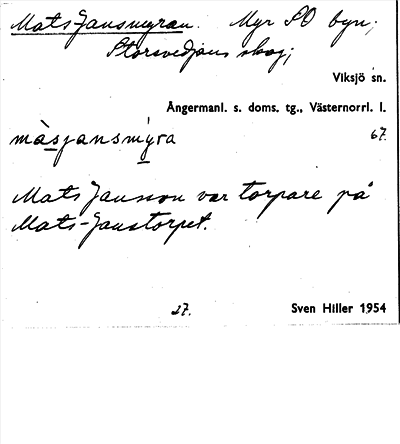 Mats-Jansmyran. Myr SO byn;
Storsvedjans skog;
Viksjö sn.
Ångermanl. s. doms. tg., Västernorrl. l.
màsjansmýra 67.
Mats Jansson var torpare på
Mats-Janstorpet.
27. Sven Hiller 1954